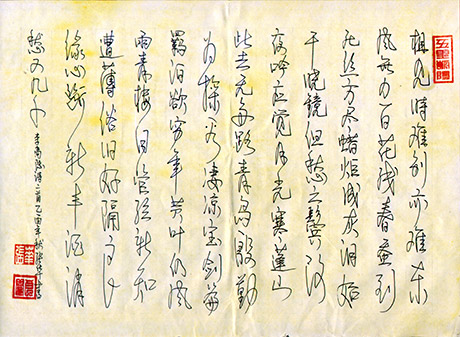 相见时难别亦难东
风无力百花残春蚕到
死丝方尽蜡炬成灰泪始
干晓镜但愁云鬓改
夜吟应觉月光寒蓬山
此去无多路青鸟殷勤
为探看凄凉宝剑篇
羁泊欲穷年黄叶仍风
雨青楼自管弦新知
遭薄俗旧好隔良
缘心断新丰酒消
愁又几千
李商隐诗二首乙酉年秋